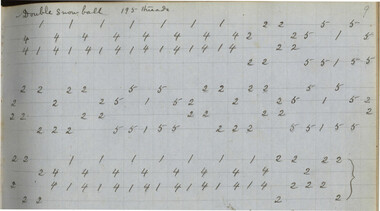 Double Snow ball 195 threads 9
1 1 1 1 1 1 1 2 2 5 5
4 4 4 4 4 4 4 4 2 2 5 1 5
4 1 4 1 4 1 4 1 4 1 4 1 4 1 4 2 2
2 2 5 5 1 5 5
2 2 2 2 5 5 2 2 2 2 5 5
2 2 2 5 1 5 2 2 2 2 5 1 5 2
2 2 2 2 2 2 2 2 2 2
2 2 2 5 5 1 5 5 2 2 2 5 5 1 5 5
2 2 1 1 1 1 1 1 1 2 2 2 2
2 4 4 4 4 4 4 4 4 2
2 4 1 4 1 4 1 4 1 4 1 4 1 4 1 4 2 2 2
2 2 2 2